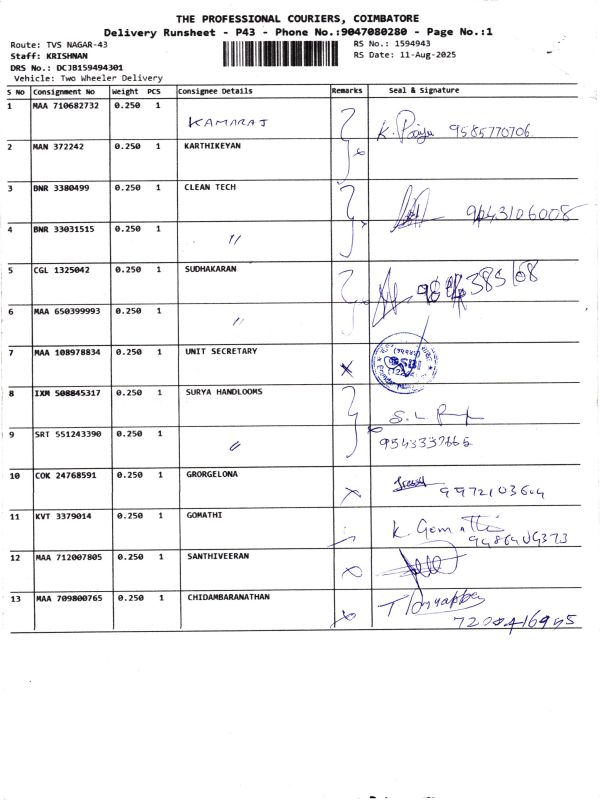 THE PROFESSIONAL COURIERS, COIMBATORE
Delivery Runsheet - P43 - Phone No.:9047080280 - Page No.:1
Route: TVS NAGAR-43 RS No.: 1594943
Staff: KRISHNAN RS Date: 11-Aug-2025
DRS No.: DCJB159494301
Vehicle: Two Wheeler Delivery
S No Consignment No Weight PCS Consignee Details Remarks Seal & Signature
1 MAA 710682732 0.250 1 KAMARAJ K. Priya 9585770706
2 MAN 372242 0.250 1 KARTHIKEYAN
3 BNR 3380499 0.250 1 CLEAN TECH 9043106008
4 BNR 33031515 0.250 1 〃
5 CGL 1325042 0.250 1 SUDHAKARAN
6 MAA 650399993 0.250 1 〃
7 MAA 108978834 0.250 1 UNIT SECRETARY SBI
8 IXM 508845317 0.250 1 SURYA HANDLOOMS
9 SRT 551243390 0.250 1 〃
10 COK 24768591 0.250 1 GRORGELONA 9972103604
11 KVT 3379014 0.250 1 GOMATHI K Gomathi
12 MAA 712007805 0.250 1 SANTHIVEERAN
13 MAA 709800765 0.250 1 CHIDAMBARANATHAN